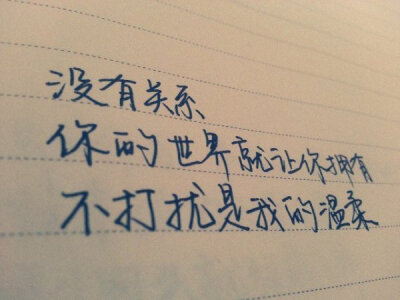 没有关系
你的世界就让你拥有
不打扰是我的温柔